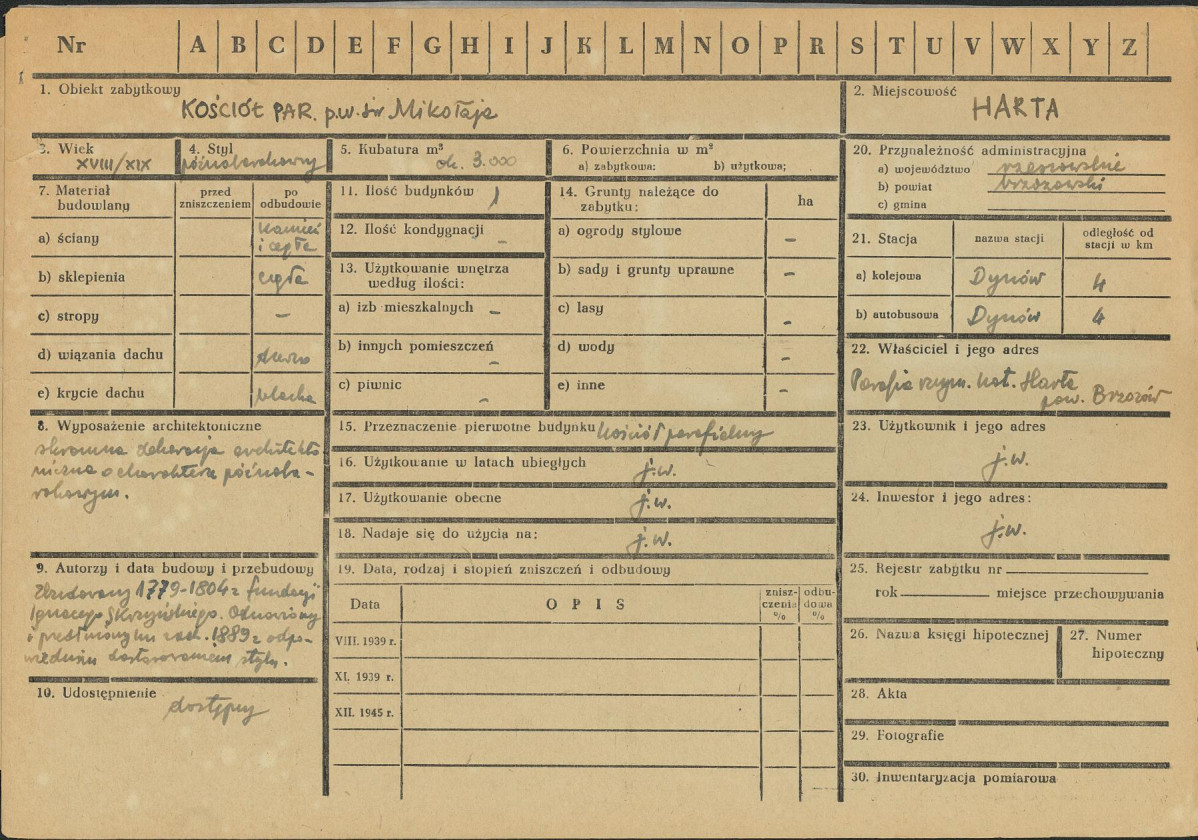 Nr A B C D E F G H I J K L M N O P R S T U V W X Y Z
1. Obiekt zabytkowy
KOŚCIÓŁ PAR. p.w. św Mikołaja
2. Miejscowość
HARTA
3. Wiek
XVIII/XIX
4. Styl
późnobarokowy
5. Kubatura m³
ok. 3.000
6. Powierzchnia w m²
a) zabytkowa: b) użytkowa;
7. Materiał budowlany
przed zniszczeniem
po odbudowie
a) ściany
kamień
i cegła
b) sklepienia
cegła
c) stropy
–
d) wiązania dachu
drewno
e) krycie dachu
blacha
8. Wyposażenie architektoniczne
skromna dekoracja architekto
niczna o charakterze późnoba-
rokowym.
9. Autorzy i data budowy i przebudowy
Zbudowany 1779-1804 z fundacji
Ignacego Skrzyńskiego. Odnowiony
i przedłużony ku zach. 1889 z odpo-
wiednim dostosowaniem stylu.
10. Udostępnienie
dostępny
11. Ilość budynków
1
12. Ilość kondygnacji
–
13. Użytkowanie wnętrza
według ilości:
a) izb mieszkalnych –
b) innych pomieszczeń
–
c) piwnic
–
14. Grunty należące do
zabytku:
ha
a) ogrody stylowe
–
b) sady i grunty uprawne
–
c) lasy
–
d) wody
–
e) inne
–
15. Przeznaczenie pierwotne budynku kościół parafialny
16. Użytkowanie w latach ubiegłych
j.w.
17. Użytkowanie obecne
j.w.
18. Nadaje się do użycia na:
j.w.
19. Data, rodzaj i stopień zniszczeń i odbudowy
Data
O P I S
znisz-
czenia
%
odbu-
dowa
%
VIII. 1939 r.
XI. 1939 r.
XII. 1945 r.
20. Przynależność administracyjna
a) województwo rzeszowskie
b) powiat brzozowski
c) gmina
21. Stacja
nazwa stacji
odległość od
stacji w km
a) kolejowa
Dynów
4
b) autobusowa
Dynów
4
22. Właściciel i jego adres
Parafia rzym. kat. Harta
pow. Brzozów
23. Użytkownik i jego adres
j.w.
24. Inwestor i jego adres:
j.w.
25. Rejestr zabytku nr
rok miejsce przechowywania
26. Nazwa księgi hipotecznej
27. Numer
hipoteczny
28. Akta
29. Fotografie
30. Inwentaryzacja pomiarowa